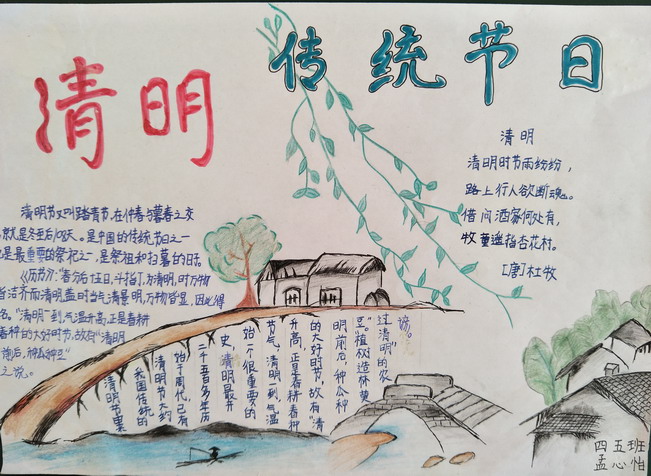 清明
传统节日
清明
清明时节雨纷纷，
路上行人欲断魂。
借问酒家何处有，
牧童遥指杏花村。
[唐]杜牧
清明节又叫踏青节，在仲春与暮春之交
就是冬至后108天。是中国的传统节日之一
也是最重要的祭祀之一，是祭祖和扫墓的日子。
《历书》："春分后十五日，斗指丁，为清明，时万物
皆洁齐而清明，盖时当气清景明，万物皆显，因此得
名。"清明一到，气温升高，正是春耕
春种的大好时节，故有"清明
前后，种瓜种豆"
之说。
清明节是
我国传统的
清明节大约
始于周代，已有
二千五百多年历
史，清明最开
始是个很重要的
节气，清明一到，气温
升高，正是春耕春种
的大好时节，故有"清
明前后，种瓜种
豆。""植树造林，莫
过清明"的农
谚。
四五班
孟心怡